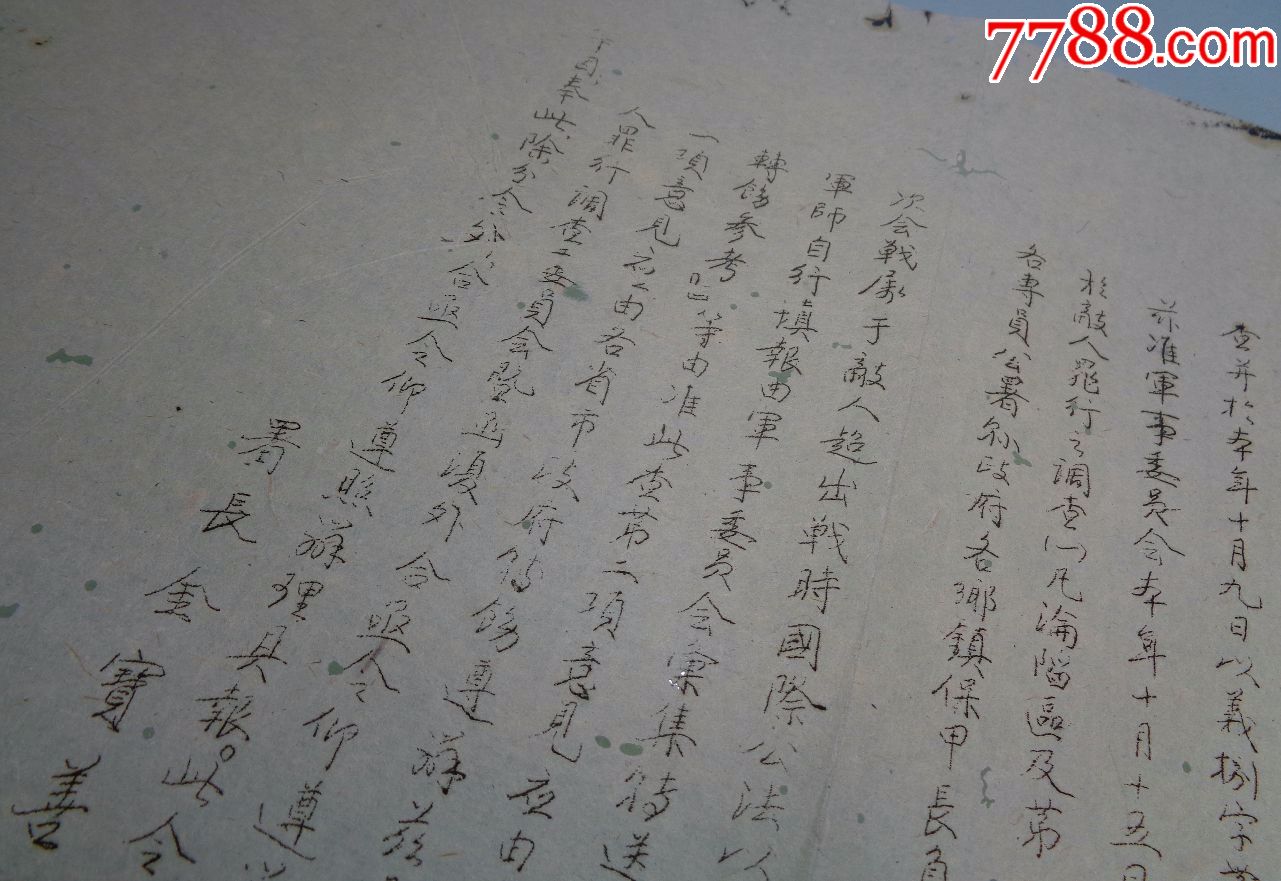 7788.com
查并於本年十月九日以義捌字
茲准軍事委員会本年十月十五日
於敵人罪行之調查(一)凡淪陷區及第
各專員公署縣政府各鄉鎮保甲長負
次会戰屬于敵人超出戰時國際公法以
軍師自行填報由軍事委員会彙集轉送
轉飭參考等由准此查第二項意見應由
一項意見應由各省市政府轉飭遵辦茲
人罪行調查委員会暨函復外合亟令仰遵
奉此除分令外合亟令仰遵照辦理具報。此令
署長金寶善